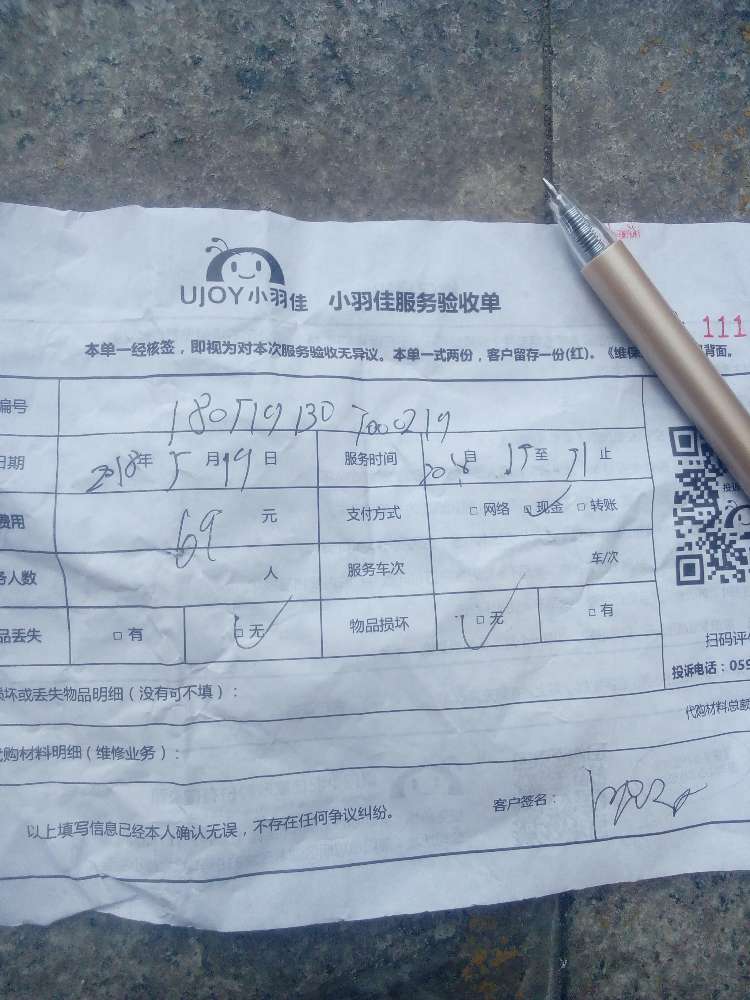 UJOY小羽佳 小羽佳服务验收单
111
本单一经核签，即视为对本次服务验收无异议。本单一式两份，客户留存一份(红)。《维保 背面。
编号 180519130 T000219
日期 2018年 5月19日 服务时间 自 至 止
费用 69 元 支付方式 □ 网络 □ 现金 □ 转账
务人数 人 服务车次 车/次
品丢失 □ 有 □ 无 物品损坏 □ 无 □ 有
扫码评价
投诉电话：059
损坏或丢失物品明细（没有可不填）：
代购材料总额
代购材料明细（维修业务）：
客户签名：
以上填写信息已经本人确认无误，不存在任何争议纠纷。